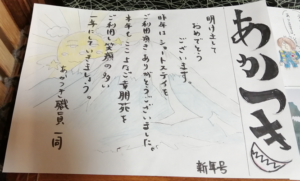 あかつき
新年号
明けまして
おめでとう
ございます。
昨年はショートステイを
ご利用頂きありがとうございました。
本年も
ご利用 笑顔の多い
一年にしていきましょう。
あかつき 職員一同